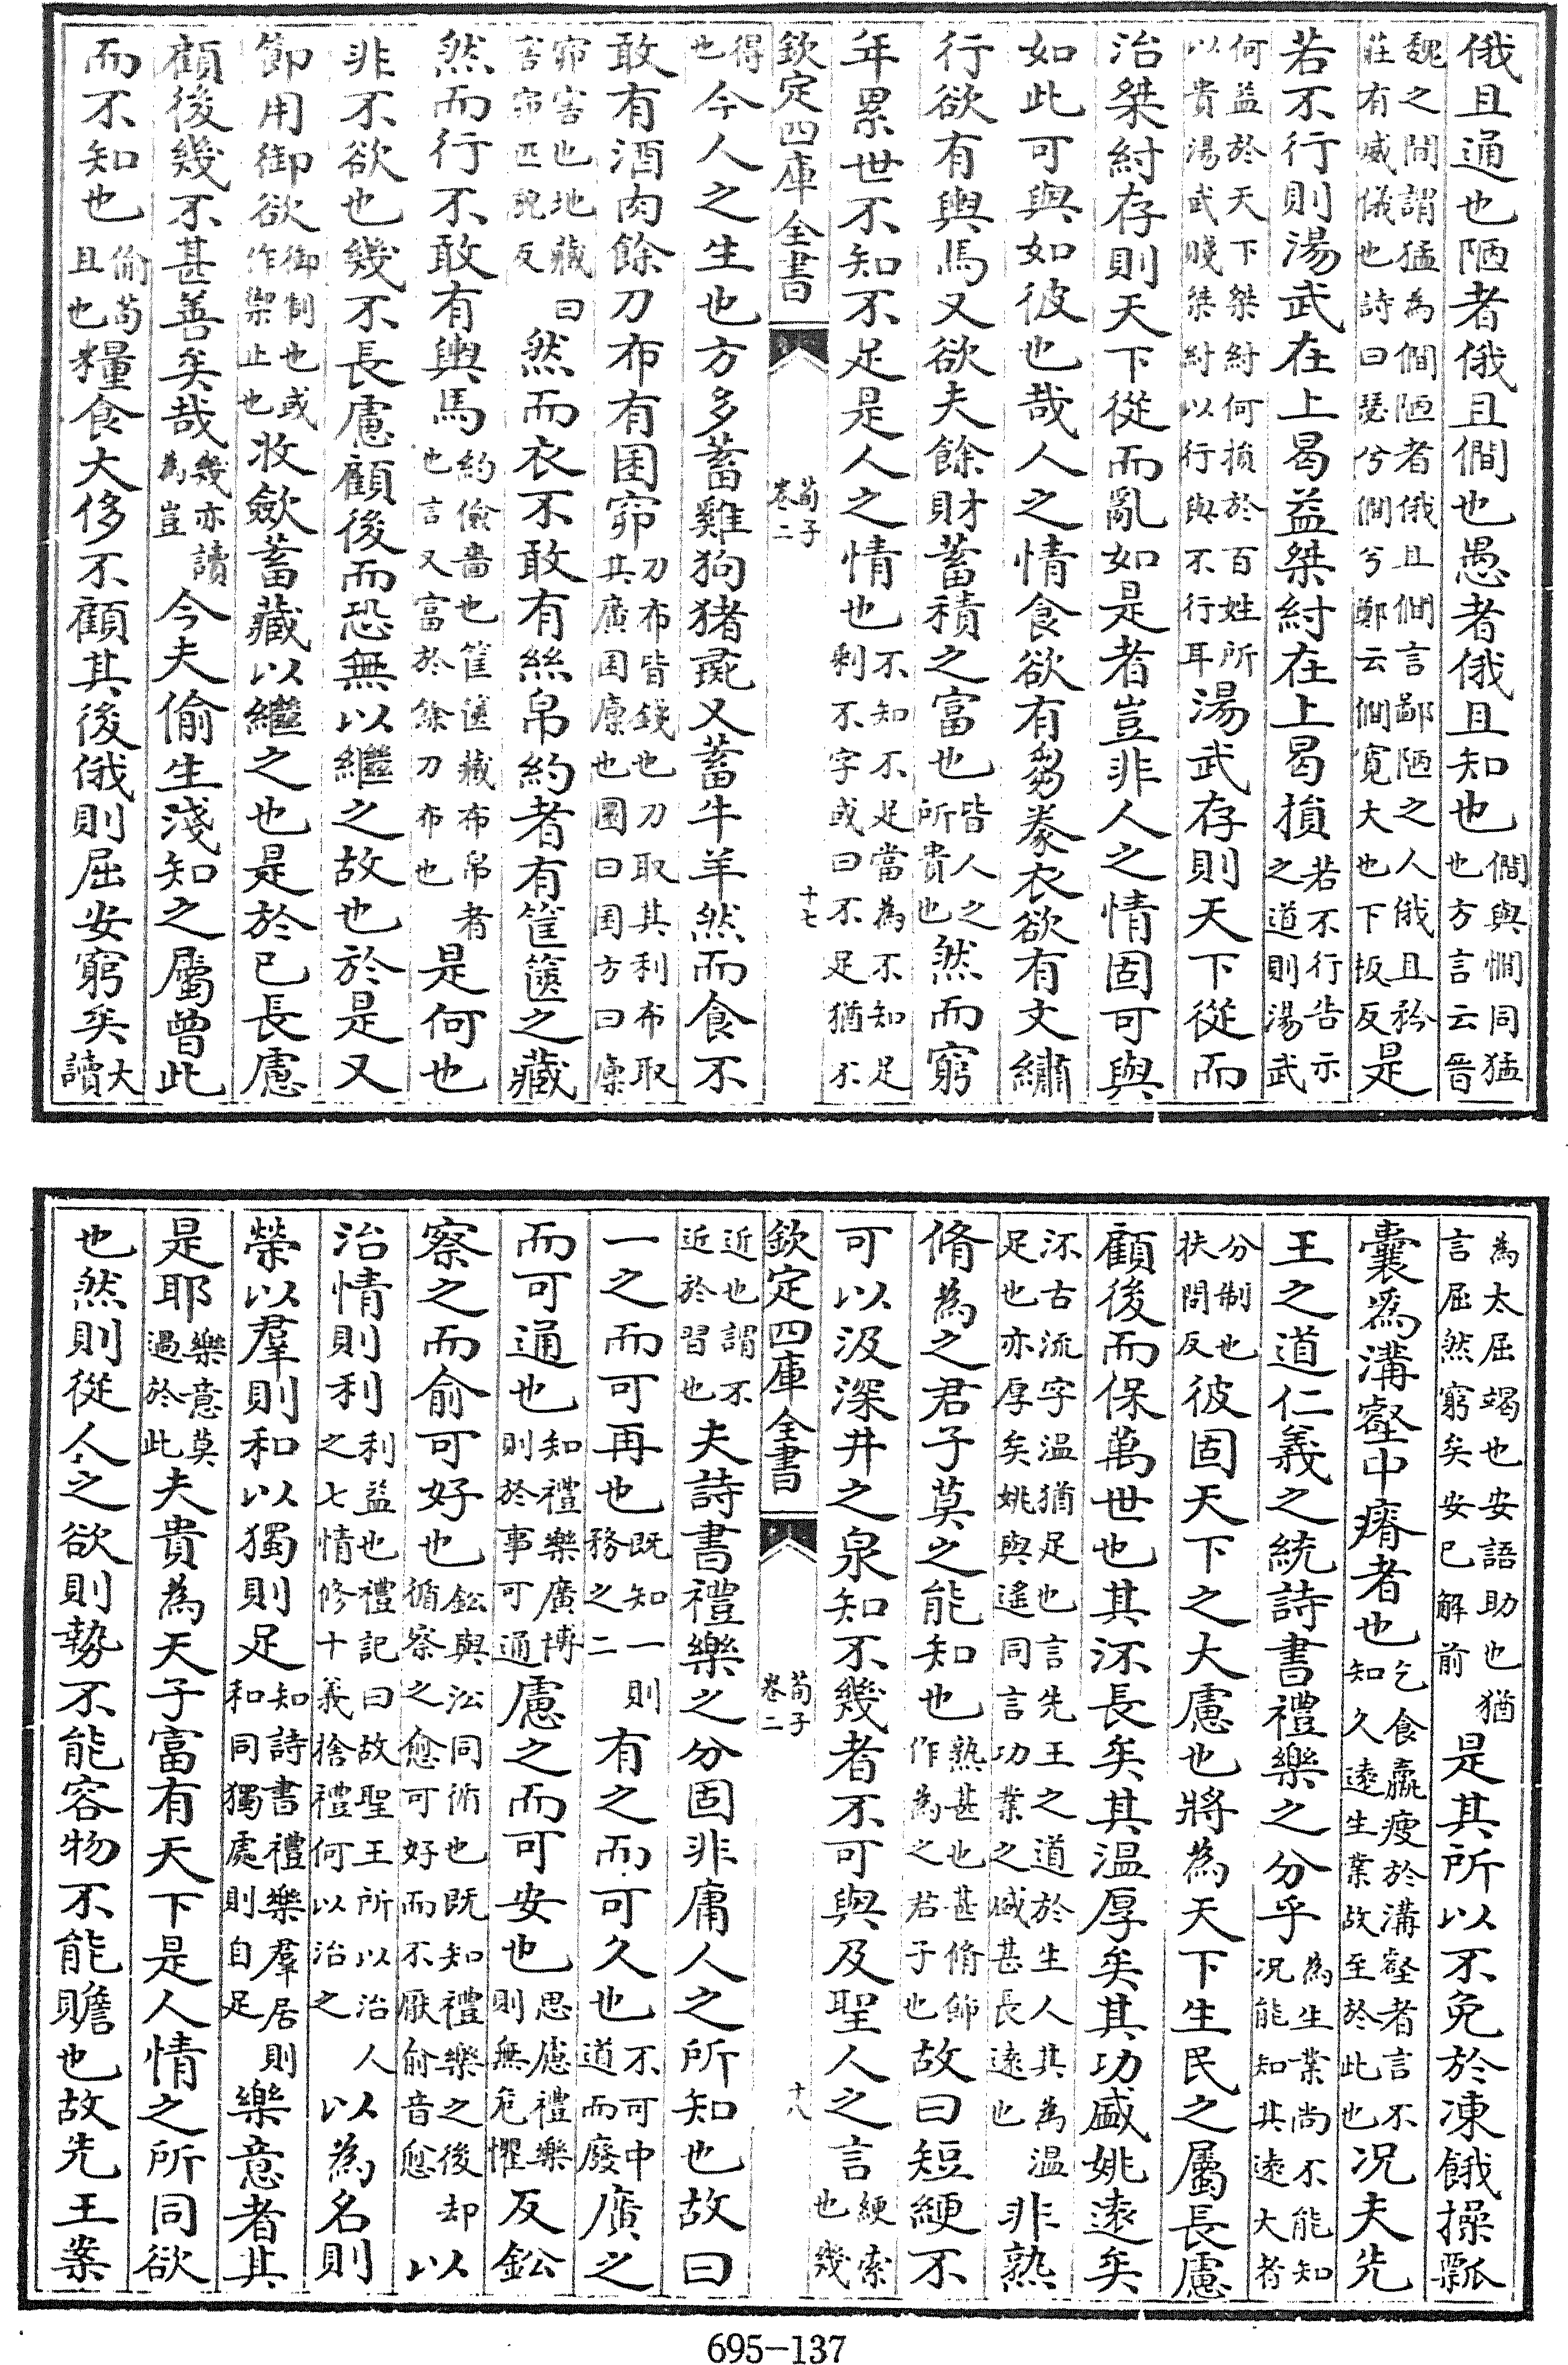 俄且通也陋者俄且僩也愚者俄且知也僩與憪同猛也方言云晉
魏之間謂猛為僩陋者俄且僩言鄙陋之人俄且矜莊有威儀也詩曰瑟兮僩兮鄭云僩寛大也下板反是
若不行則湯武在上曷益桀紂在上曷損若不行告示之道則湯武
何益於天下桀紂何損於百姓所以貴湯武賤桀紂以行與不行耳湯武存則天下從而
治桀紂存則天下從而亂如是者豈非人之情固可與
如此可與如彼也哉人之情食欲有芻豢衣欲有文繡
行欲有輿馬又欲夫餘財蓄積之富也皆人之所貴也然而窮
年累世不知不足是人之情也不知不足當為不知足剩不字或曰不足猶不
欽定四庫全書 荀子卷二 十七
得也今人之生也方多蓄雞狗猪彘又蓄牛羊然而食不
敢有酒肉餘刀布有囷窌刀布皆錢也刀取其利布取其廣囷廩也圜曰囷方曰廩
窌窖也地藏曰窖窌匹貌反然而衣不敢有絲帛約者有筐篋之藏
然而行不敢有輿馬約儉嗇也筐篋藏布帛者也言又富於餘刀布也是何也
非不欲也幾不長慮顧後而恐無以繼之故也於是又
節用御欲御制也或作禦止也收歛蓄藏以繼之也是於已長慮
顧後幾不甚善矣哉幾亦讀為豈今夫偷生淺知之屬曾此
而不知也偷苟且也糧食大侈不顧其後俄則屈安窮矣大讀
為太屈竭也安語助也猶言屈然窮矣安已解前是其所以不免於凍餓操瓢
囊為溝壑中瘠者也乞食羸瘦於溝壑者言不知久遠生業故至於此也况夫先
王之道仁義之統詩書禮樂之分乎為生業尚不能知况能知其遠大者
分制也扶問反彼固天下之大慮也將為天下生民之屬長慮
顧後而保萬世也其汖長矣其温厚矣其功盛姚遠矣
汖古流字温猶足也言先王之道於生人其為温足也亦厚矣姚與遥同言功業之盛甚長遠也非熟
脩為之君子莫之能知也熟甚也甚脩飾作為之君子也故曰短綆不
可以汲深井之泉知不幾者不可與及聖人之言綆索也幾
欽定四庫全書 荀子卷二 十八
近也謂不近於習也夫詩書禮樂之分固非庸人之所知也故曰
一之而可再也既知一則務之二有之而可久也不可中道而廢廣之
而可通也知禮樂廣博則於事可通慮之而可安也思慮禮樂則無危懼反鈆
察之而俞可好也鈆與沿同循也既知禮樂之後却循察之愈可好而不厭俞音愈以
治情則利利益也禮記曰故聖王所以治人之七情修十義捨禮何以治之以為名則
榮以羣則和以獨則足知詩書禮樂羣居則和同獨處則自足樂意者其
是耶樂意莫過於此夫貴為天子富有天下是人情之所同欲
也然則從人之欲則勢不能容物不能贍也故先王案
695-137